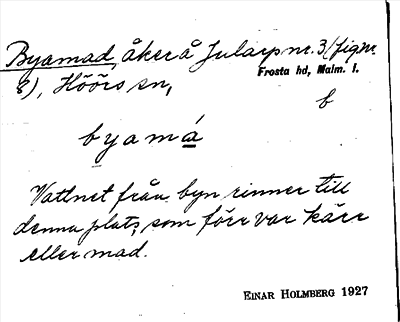 Byamad, åker å Jularp nr. 3 (fig nr.
8), Höörs sn,
Frosta hd, Malm. l.
b
byamá
Vattnet från byn rinner till
denna plats, som förr var kärr
eller mad.
EINAR HOLMBERG 1927